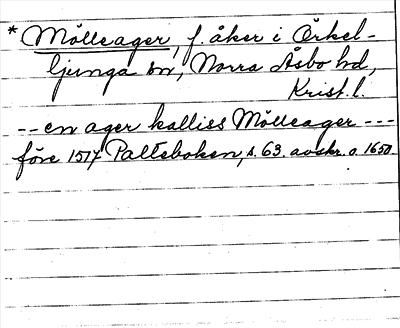 * Mölleager, f. åker i Örkel-
ljunga sn, Norra Åsbo hd,
Krist. l.
-- en ager kalliss Mölleager ---
före 1517 Palteboken, s. 63. avskr. o. 1650.